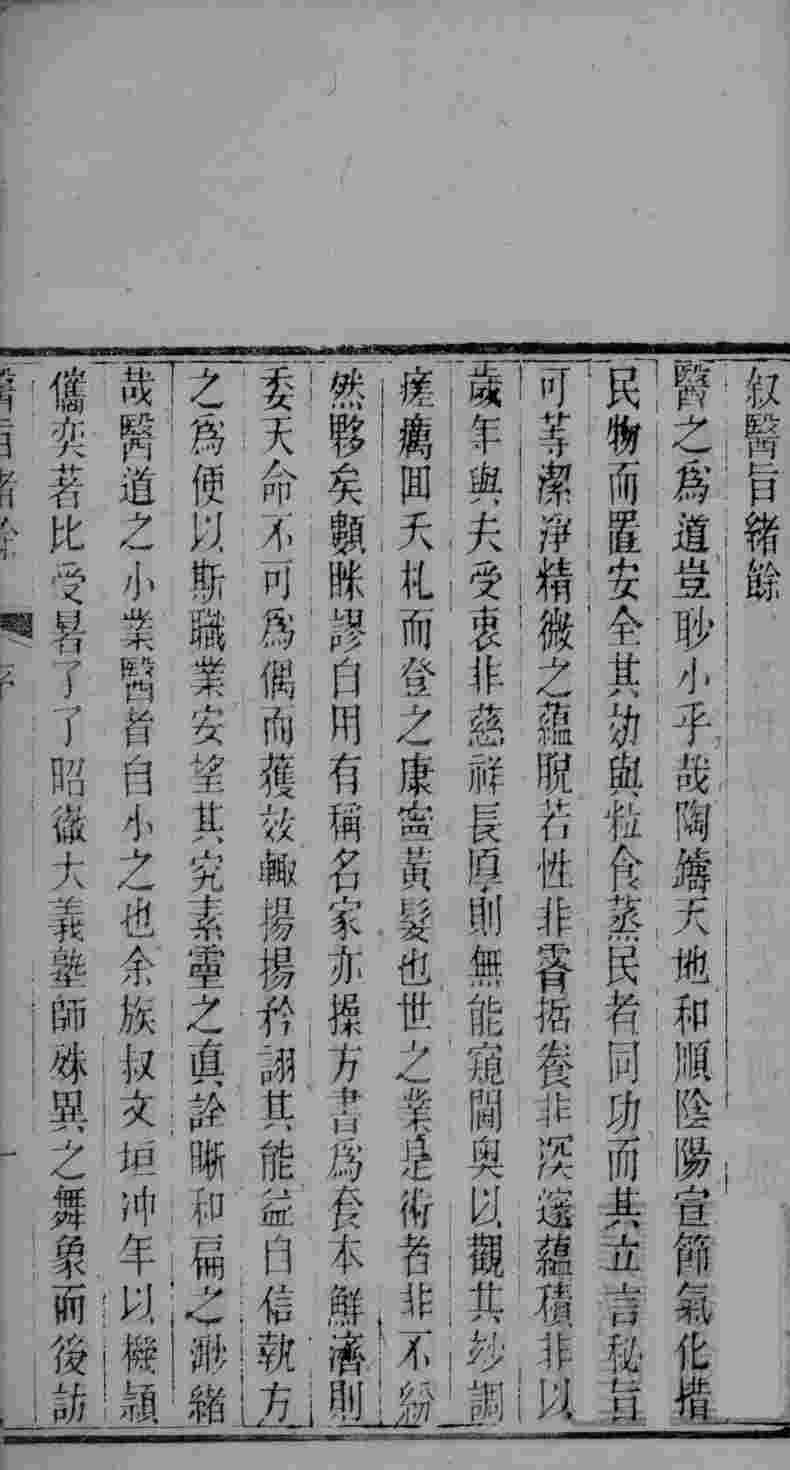 叙醫旨緒餘
醫之爲道豈眇小乎哉陶鑄天地和順陰陽宣節氣化措
民物而置安全其効與粒食蒸民者同功而其立言秘旨
可等潔淨精微之蘊脫若性非睿括養非深邃蘊積非以
歲年與夫受衷非慈祥長厚則無能窺閫奥以觀其妙調
瘥癘囬夭札而登之康寧黃髮也世之業是術者非不紛
然夥矣顓眯謬自用有稱名家亦操方書爲套本鮮濟則
委天命不可爲偶而獲效輙揚揚矜詡其能益自信執方
之爲便以斯職業安望其究素靈之眞詮晰和扁之渺緒
哉醫道之小業醫者自小之也余族叔文垣冲年以機頴
儁奕著比受暑了了昭徹大義塾師殊異之舞象而後訪
醫旨緒餘
序
一